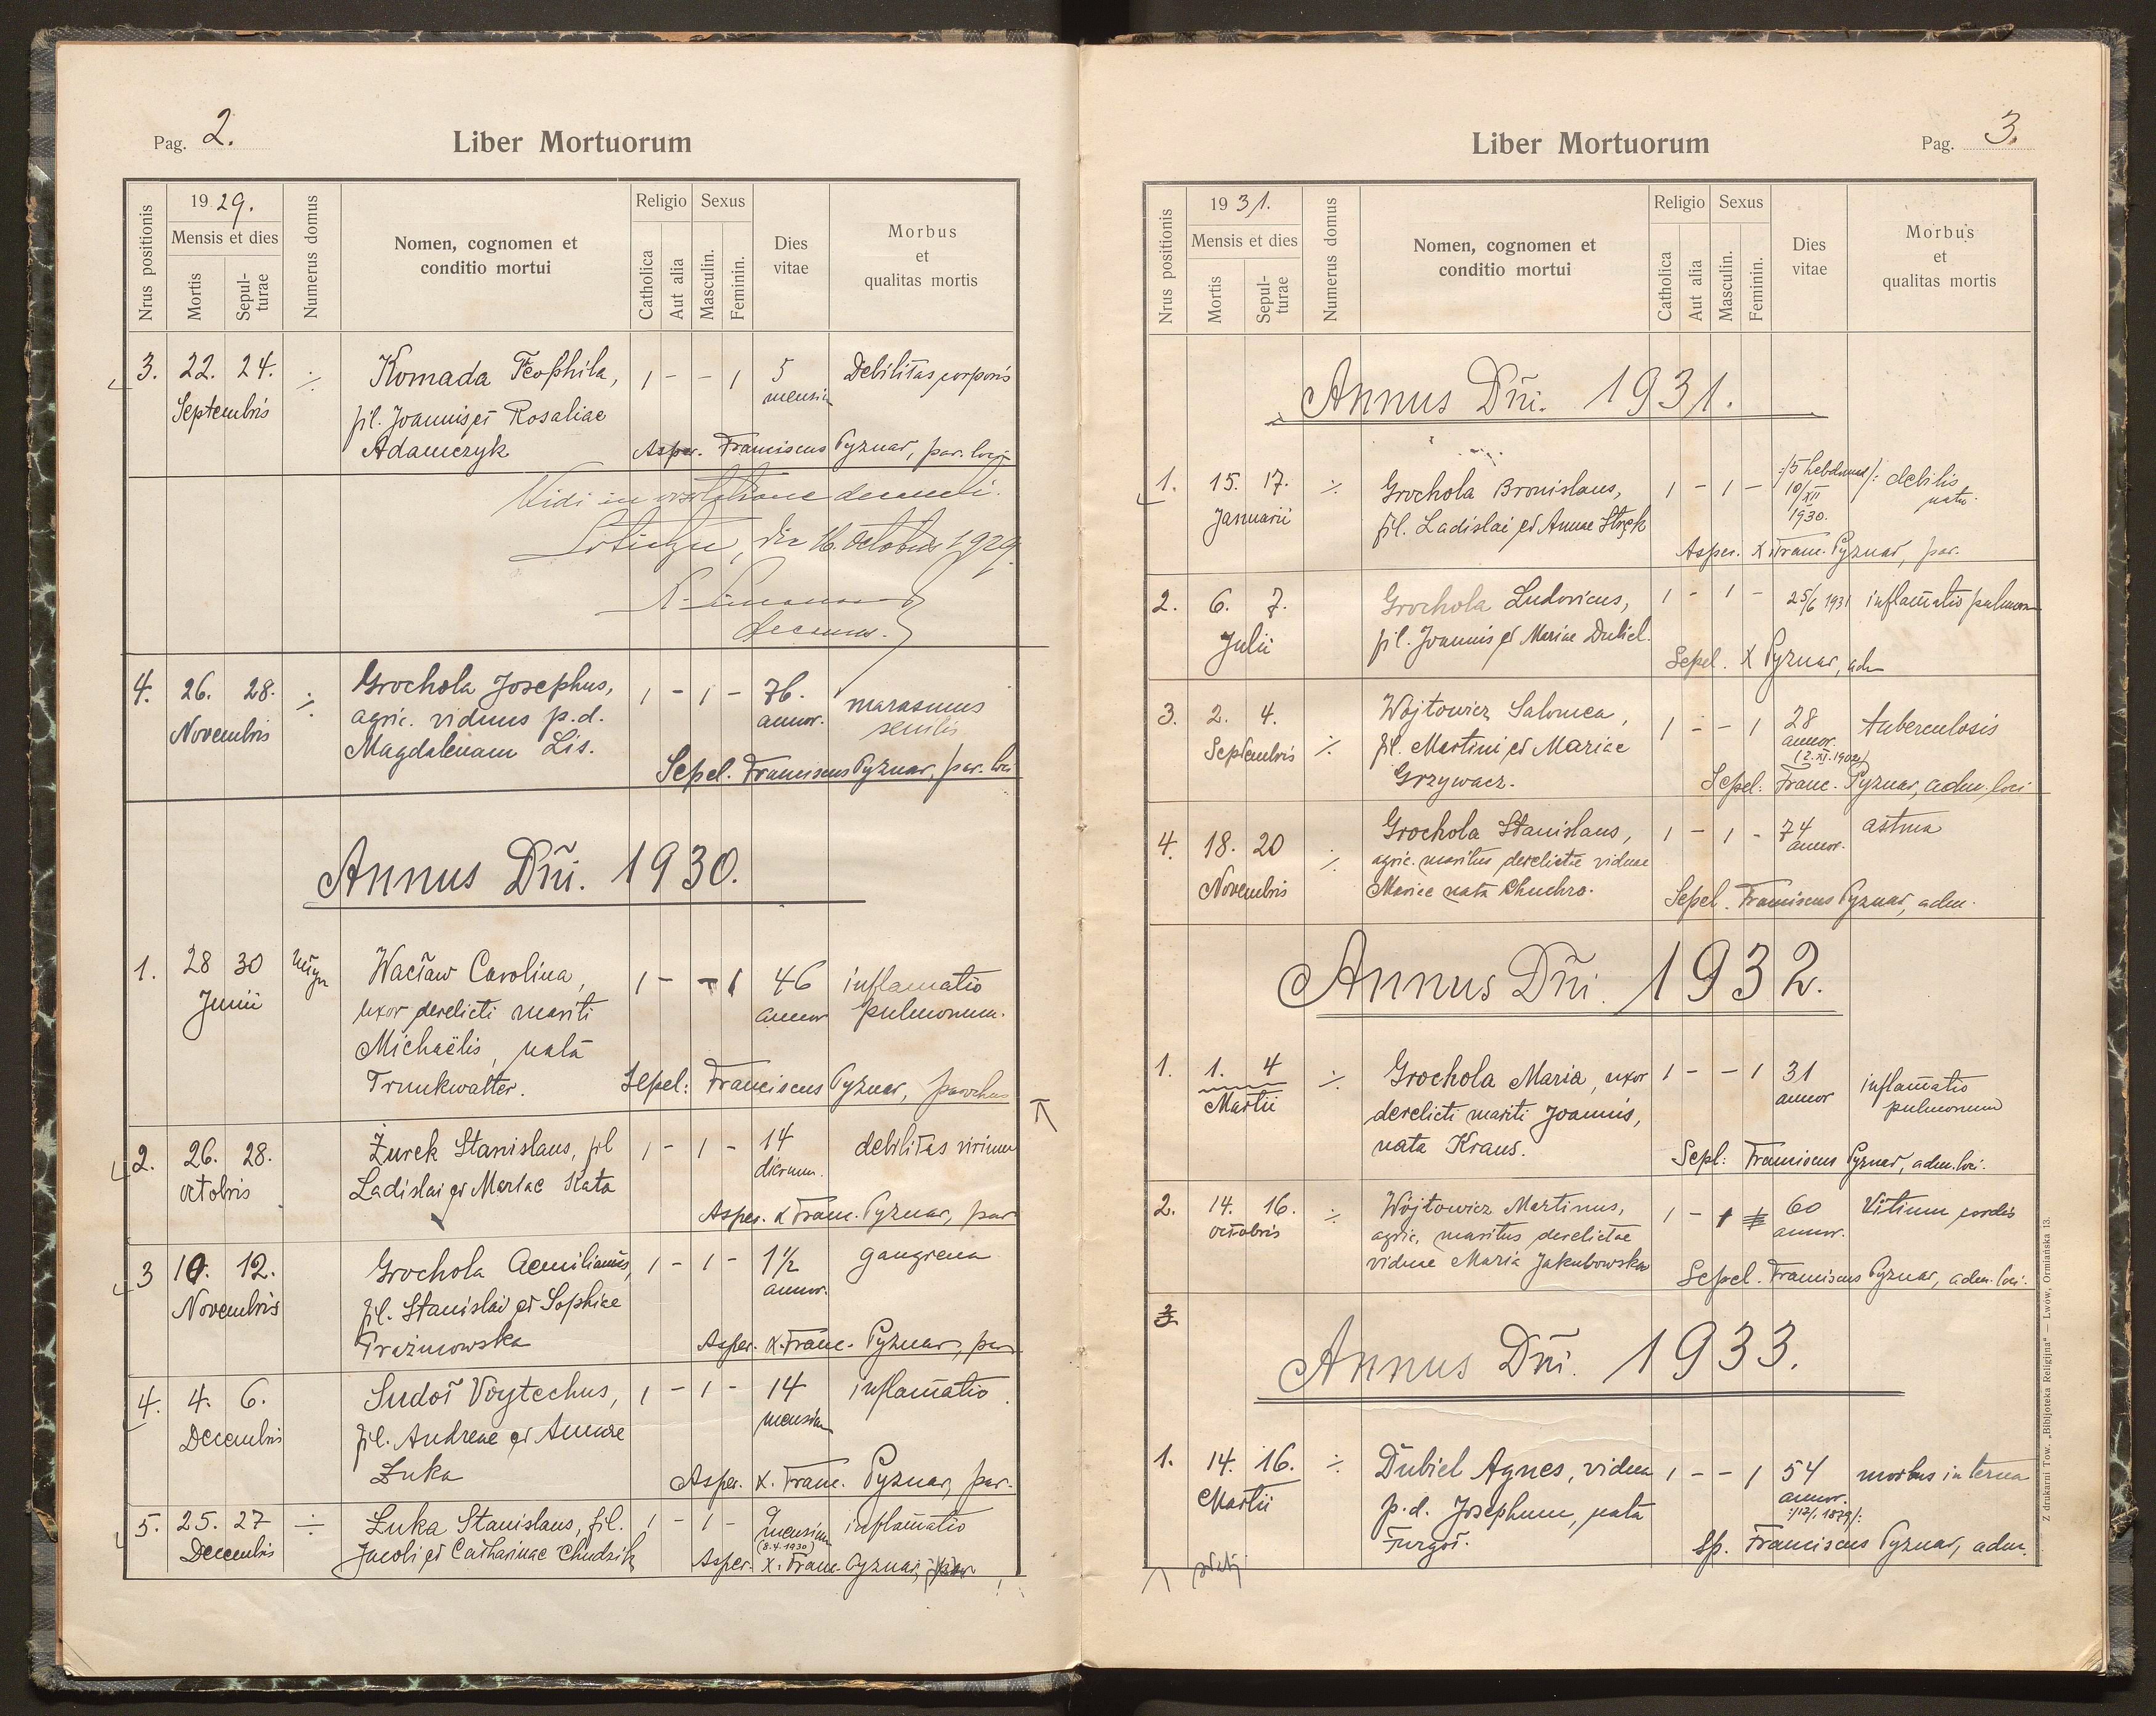 Pag. 2.
Liber Mortuorum
Nrus positionis
1929.
Mensis et dies
Mortis
Sepulturae
Numerus domus
Nomen, cognomen et
conditio mortui
Religio
Catholica
Aut alia
Sexus
Masculin.
Feminin.
Dies
vitae
Morbus
et
qualitas mortis
3. 22. 24. ÷ Komada Teophila, 1 - - 1 5 Debilitas corporis
Septembris fil. Joannis et Rosaliae mensium
Adamczyk Asper. Franciscus Pyznar, par. loci
Vidi in visitatione decanali.
die 16. Octobris 1929.
decanus.
4. 26. 28. ÷ Grochola Josephus, 1 - 1 - 76. marasmus
Novembris agric. viduus p.d. annor. senilis
Magdalenam Lis.
Sepel. Franciscus Pyznar, par. loci
Annus Dni. 1930.
1. 28 30 Wacław Carolina, 1 - - 1 46 inflamatio
Junii uxor derelicti mariti annor pulmonum.
Michaëlis, nata
Trunkwalter. Sepel: Franciscus Pyznar, parochus
2. 26. 28. Żurek Stanislaus, fil 1 - 1 - 14 debilitas virium
octobris Ladislai et Mariae Kata dierum.
Asper. X Franc. Pyznar, par
3 10. 12. Grochola Aemilianus, 1 - 1 - 1½ gangrena
Novembris fil. Stanislai et Sophiae annor.
Prażmowska Asper. X. Franc. Pyznar, par
4. 4. 6. Sudoł Voytechus, 1 - 1 - 14 inflamatio
Decembris fil. Andreae et Annae mensium
Zuka Asper. X. Franc. Pyznar, par.
5. 25. 27 ÷ Luka Stanislaus, fil. 1 - 1 - 9 mensium inflamatio
Decembis Jacobi et Catharinae Chudzik (8.4.1930)
Asper. X. Franc. Pyznar,
Liber Mortuorum
Pag. 3.
Nrus positionis
1931.
Mensis et dies
Mortis
Sepulturae
Numerus domus
Nomen, cognomen et
conditio mortui
Religio
Catholica
Aut alia
Sexus
Masculin.
Feminin.
Dies
vitae
Morbus
et
qualitas mortis
Annus Dni. 1931.
1. 15. 17. ÷ Grochola Bronislaus, 1 - 1 - /:5 hebdmad:/ debilis
Januarii fil. Ladislai et Annae Stręk 10/XII 1930. natu.
Asper. X Franc. Pyznar, par.
2. 6. 7. Grochola Ludovicus, 1 - 1 - 25/6 1931 inflamatio pulmon
Julii fil. Joannis et Mariae Dubiel.
Sepel. X Pyznar, adm
3. 2. 4. Wojtowicz Salomea, 1 - - 1 28 tuberculosis
Septembris ÷ fil. Martini et Mariae annor.
Grzywacz. (2.XI.1902)
Sepel: Franc. Pyznar, adm. loci
4. 18. 20 ÷ Grochola Stanislaus, 1 - 1 - 74 astma
Novembris agric. maritus derelictae viduae annor.
Mariae nata Chuchro.
Sepel. Franciscus Pyznar, adm.
Annus Dni. 1932.
1. 1. 4 ÷ Grochola Maria, uxor 1 - - 1 31 inflamatio
Martii derelicti mariti Joannis, annor pulmonum
nata Kraus.
Sepl: Franciscus Pyznar, adm. loci.
2. 14. 16. ÷ Wojtowicz Martinus, 1 - 1 60 Vitium cordis
octobris agric. maritus derelictae annor.
viduae Maria Jakubowska
Sepel. Franciscus Pyznar, adm. loci.
3
Annus Dni. 1933.
1. 14. 16. ÷ Dubiel Agnes, vidua 1 - - 1 54 morbus interna
Martii p.d. Josephum, nata annor.
Furgoł. :/12/1 1879/:
Sp. Franciscus Pyznar, adm.
Z drukarni Tow. „Bibljoteka Religijna" — Lwów, Ormiańska 13.